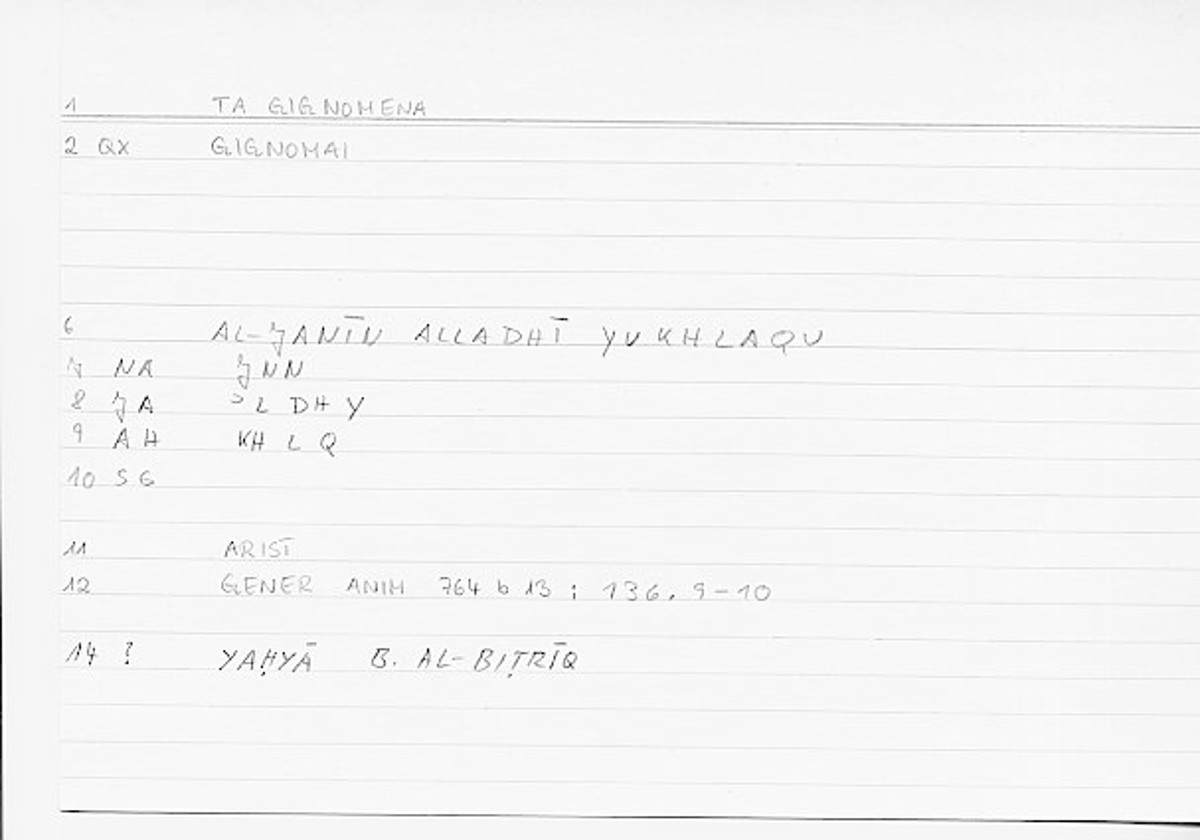 1 TA GIGNOMENA
2 QX GIGNOMAI
6 AL-ǦANĪN ALLADHĪ YUKHLAQU
7 NA ǦNN
8 ǦA ʾL DH Y
9 AH KH L Q
10 SG
11 ARIST
12 GENER ANIM 764 b 13 ; 136. 9-10
14 ? YAḤYĀ B. AL-BIṬRĪQ